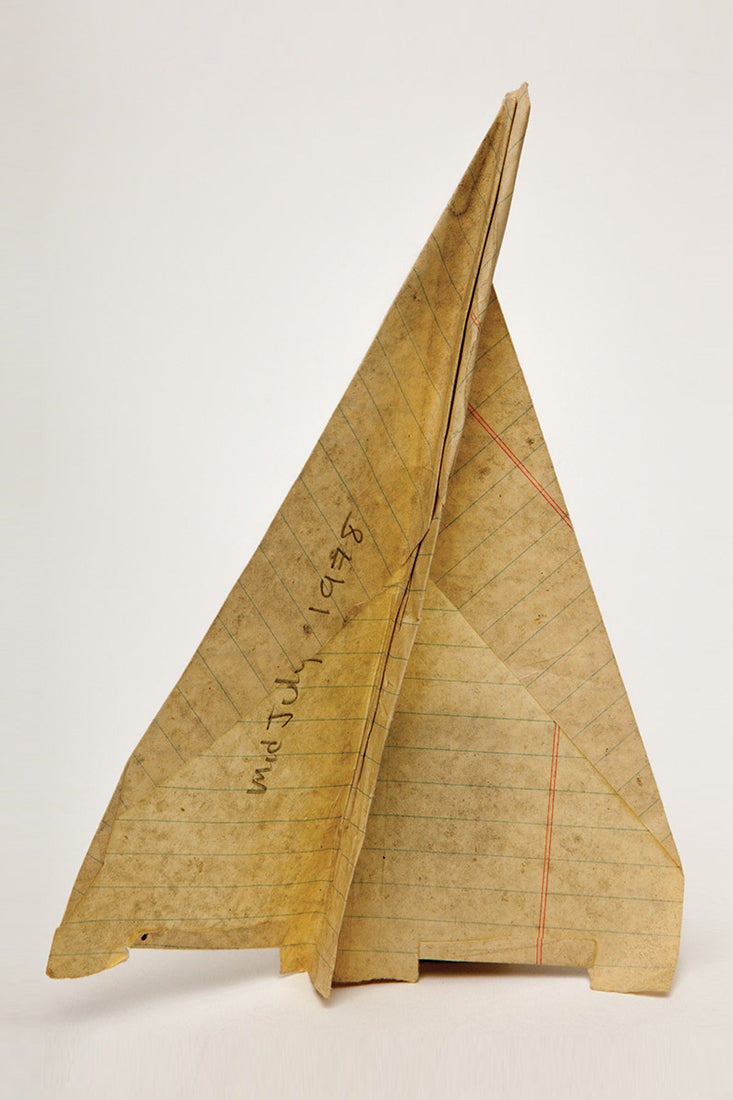 mid July 1978